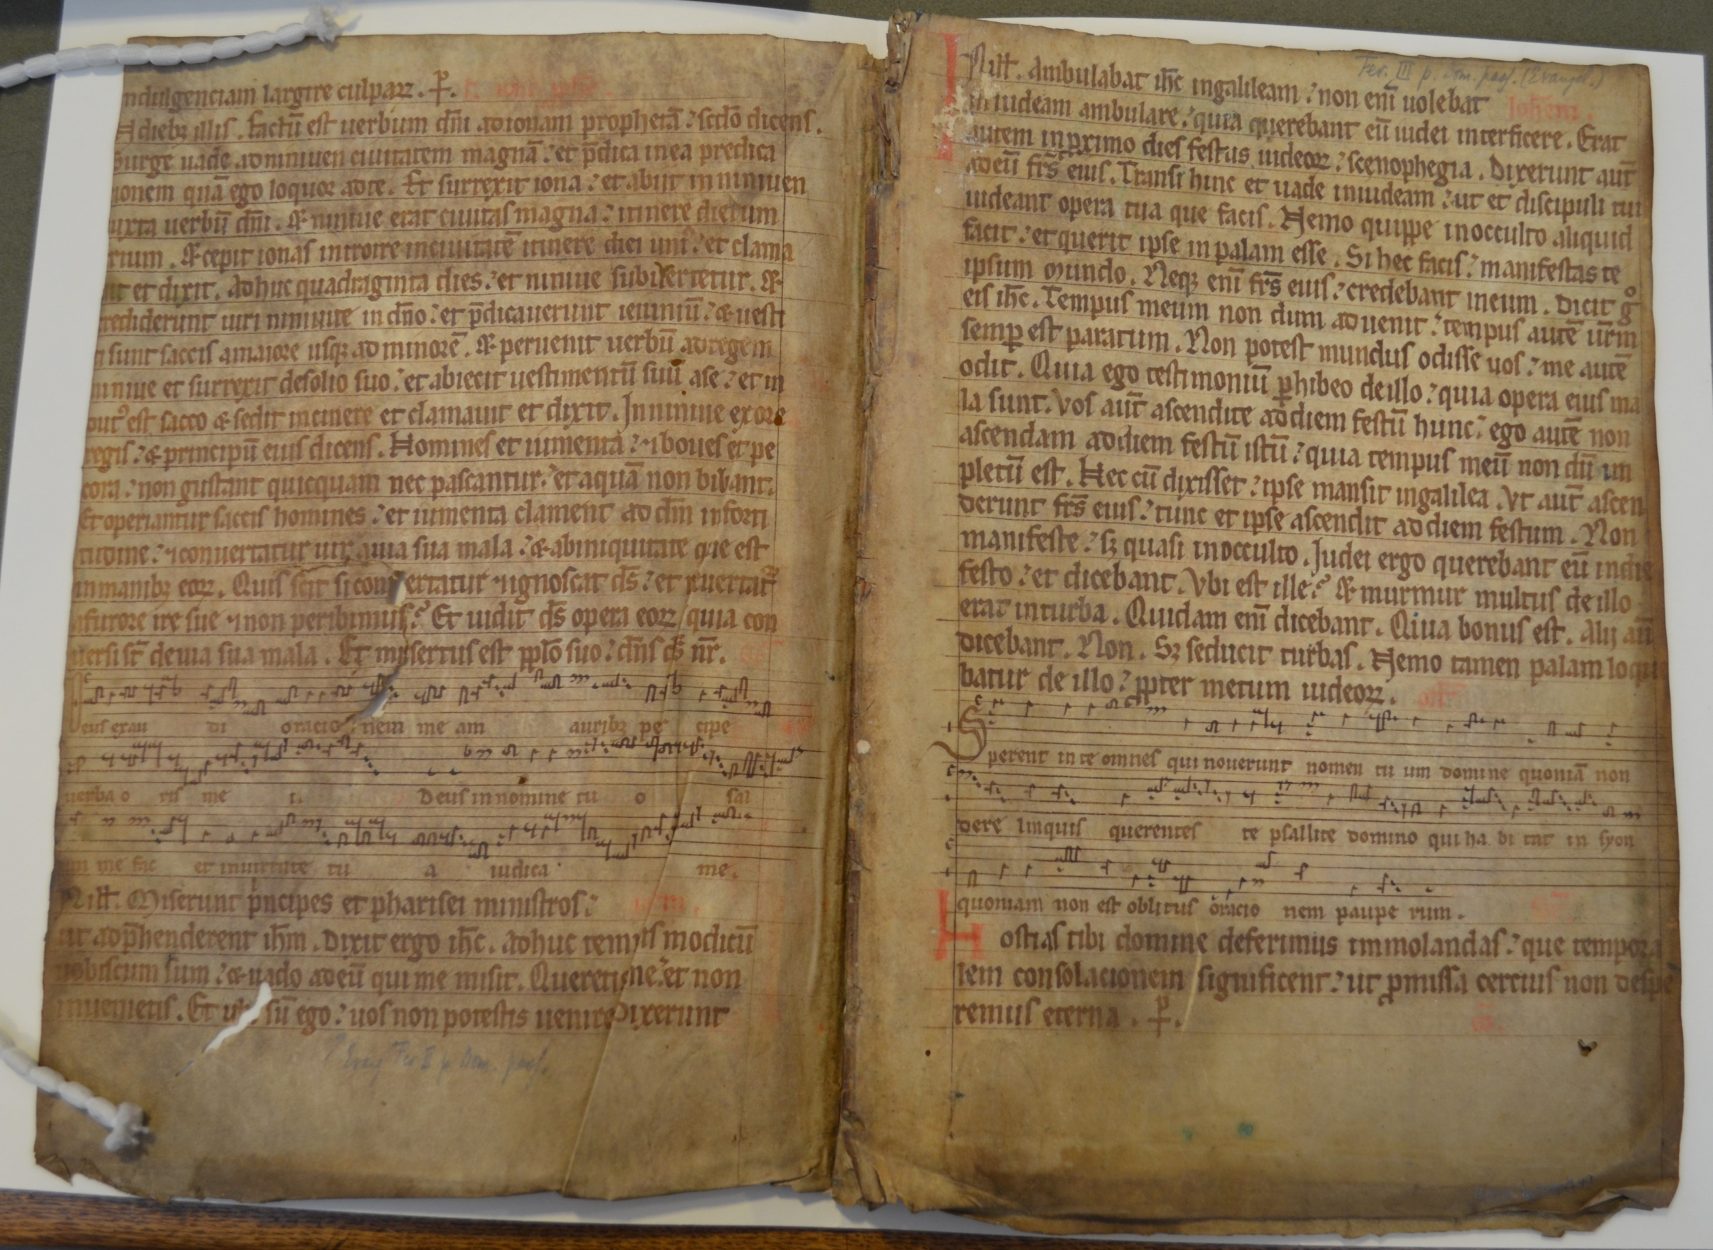 indulgenciam largire culpaꝝ. P̄.
diebꝫ illis. factū est uerbum dn̄i ad ionam prophetā ⁊ scd̄o dicens.
Surge uade ad niniuen ciuitatem magnā ⁊ et p̄dica in ea predica
tionem quā ego loquor ad te. Et surrexit iona ⁊ et abiit in niniuen
iuxta uerbū dn̄i. & niniue erat ciuitas magna ⁊ itinere dierum
trium. & cepit ionas introire in ciuitatē itinere diei uni⁹ ⁊ et clama
uit et dixit. Adhuc quadraginta dies ⁊ et niniue subuertetur. &
crediderunt uiri niniuite in dn̄o ⁊ et p̄dicauerunt ieiuniū ⁊ & uesti
ti sunt saccis a maiore usqꝫ ad minorē. & peruenit uerbū ad regem
niniue et surrexit de solio suo ⁊ et abiecit uestimentū suū a se ⁊ et in
dut⁹ est sacco & sedit in cinere et clamauit et dixit. In niniue ex ore
regis ⁊ & principū eius dicens. Homines et iumenta ⁊ ⁊ boues et pe
cora ⁊ non gustant quicquam nec pascantur ⁊ et aquā non bibant.
Et operiantur saccis homines ⁊ et iumenta clament ad dn̄m in forti
tudine ⁊ ⁊ conuertatur uir a uia sua mala ⁊ & ab iniquitate que est
in manibꝫ eoꝝ. Quis scit si conuertatur ⁊ ignoscat ds̄ ⁊ et reuertat᷑
a furore ire sue ⁊ non peribimus? Et uidit ds̄ opera eoꝝ quia con
uersi st̄ de uia sua mala. Et misertus est pplo suo ⁊ dn̄s ds̄ nr̄.
Deus exau di oracio nem me am auribꝫ pe cipe
uerba o ris me i Deus in nomine tu o sal
um me fac et in uirtute tu a iudica me.
In ill̄. Miserunt p̄ncipes et pharisei ministros ⁊ ioh̄m.
ut app̄henderent ih̄m. Dixit ergo ih̄c. Adhuc tempus modicū
uobiscum sum ⁊ & uado ad eū qui me misit. Queretis me ⁊ et non
inuenietis. Et ubi sū ego ⁊ uos non potestis uenire Dixerunt
Fer. III p. Dom. pass. (Evangel.)
In ill̄. Ambulabat ih̄c in galileam ⁊ non enī uolebat Ioh̄em.
in iudeam ambulare ⁊ quia querebant eū iudei interficere. Erat
autem in p̱ximo dies festus iudeoꝝ ⁊ scenophegia. Dixerunt aut̄
ad eū frs̄ eius. Transi hinc et uade in iudeam ⁊ ut et discipuli tui
uideant opera tua que facis. Nemo quippe in occulto aliquid
facit ⁊ et querit ipse in palam esse. Si hec facis ⁊ manifestas te
ipsum mundo. Neqꝫ enī frs̄ eius ⁊ credebant in eum. Dicit gͦ
eis ih̄c. Tempus meum non dum aduenit ⁊ tempus autē ur̄m
semp̱ est paratum. Non potest mundus odisse uos ⁊ me autē
odit. Quia ego testimoniū p̱hibeo de illo ⁊ quia opera eius ma
la sunt. Vos aut̄ ascendite ad diem festū hunc ⁊ ego autē non
ascendam ad diem festū istū ⁊ quia tempus meū non dū im
pletū est. Hec cū dixisset ⁊ ipse mansit in galilea. Vt aut̄ ascen
derunt frs̄ eius ⁊ tunc et ipse ascendit ad diem festum. Non
manifeste ⁊ sꝫ quasi in occulto. Iudei ergo querebant eū in die
festo ⁊ et dicebant. Vbi est ille? & murmur multus de illo
erat in turba. Quidam enī dicebant. Quia bonus est. Alij au̅
dicebant. Non. Sꝫ seducit turbas. Nemo tamen palam loque
batur de illo ⁊ pp̱ter metum iudeoꝝ.
Sperent in te omnes qui nouerunt nomen tu um domine quoniā non
dere linquis querentes te psallite domino qui ha bi tat in syon
quoniam non est oblitus oracio nem paupe rum.
Hostias tibi domine deferimus immolandas ⁊ que tempora
lem consolacionem significent ⁊ ut p̱missa cercius non despe
remus eterna. P̄.